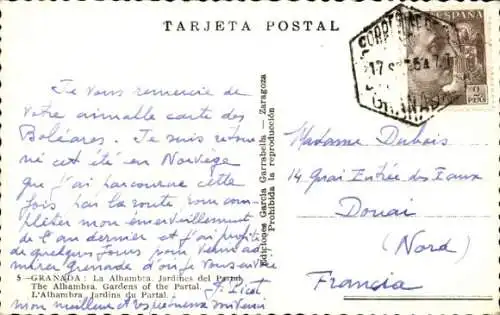 TARJETA POSTAL
Je vous remercie de
votre aimable carte des
Baléares. Je suis retour
né cet été en Norvège
que j'ai parcourue cette
fois par la route pour com
pléter mon émerveillement
de l'an dernier et j'ai profité
de quelques jours pour venir ad
mirer Grenade d'où je vous envoie
mon meilleur et respectueux souvenir
F. Picot
5 - GRANADA: La Alhambra. Jardines del Partal.
The Alhambra. Gardens of the Partal.
L'Alhambra. Jardins du Partal.
Ediciones García Garrabella - Zaragoza
Prohibida la reproducción
CORREO AEREO
GRANADA
ESPAÑA
2
PTAS
Madame Dubois
14 Quai Entrée des Eaux
Douai
(Nord)
Francia